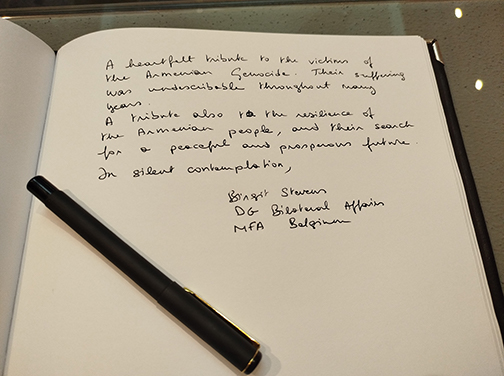 A heartfelt tribute to the victims of
the Armenian Genocide. Their suffering
was undescribable throughout many
years.
A tribute also to the resilience of
the Armenian people, and their search
for a peaceful and prosperous future.
In silent contemplation,
Birgit Stevens
DG Bilateral Affairs
MFA Belgium